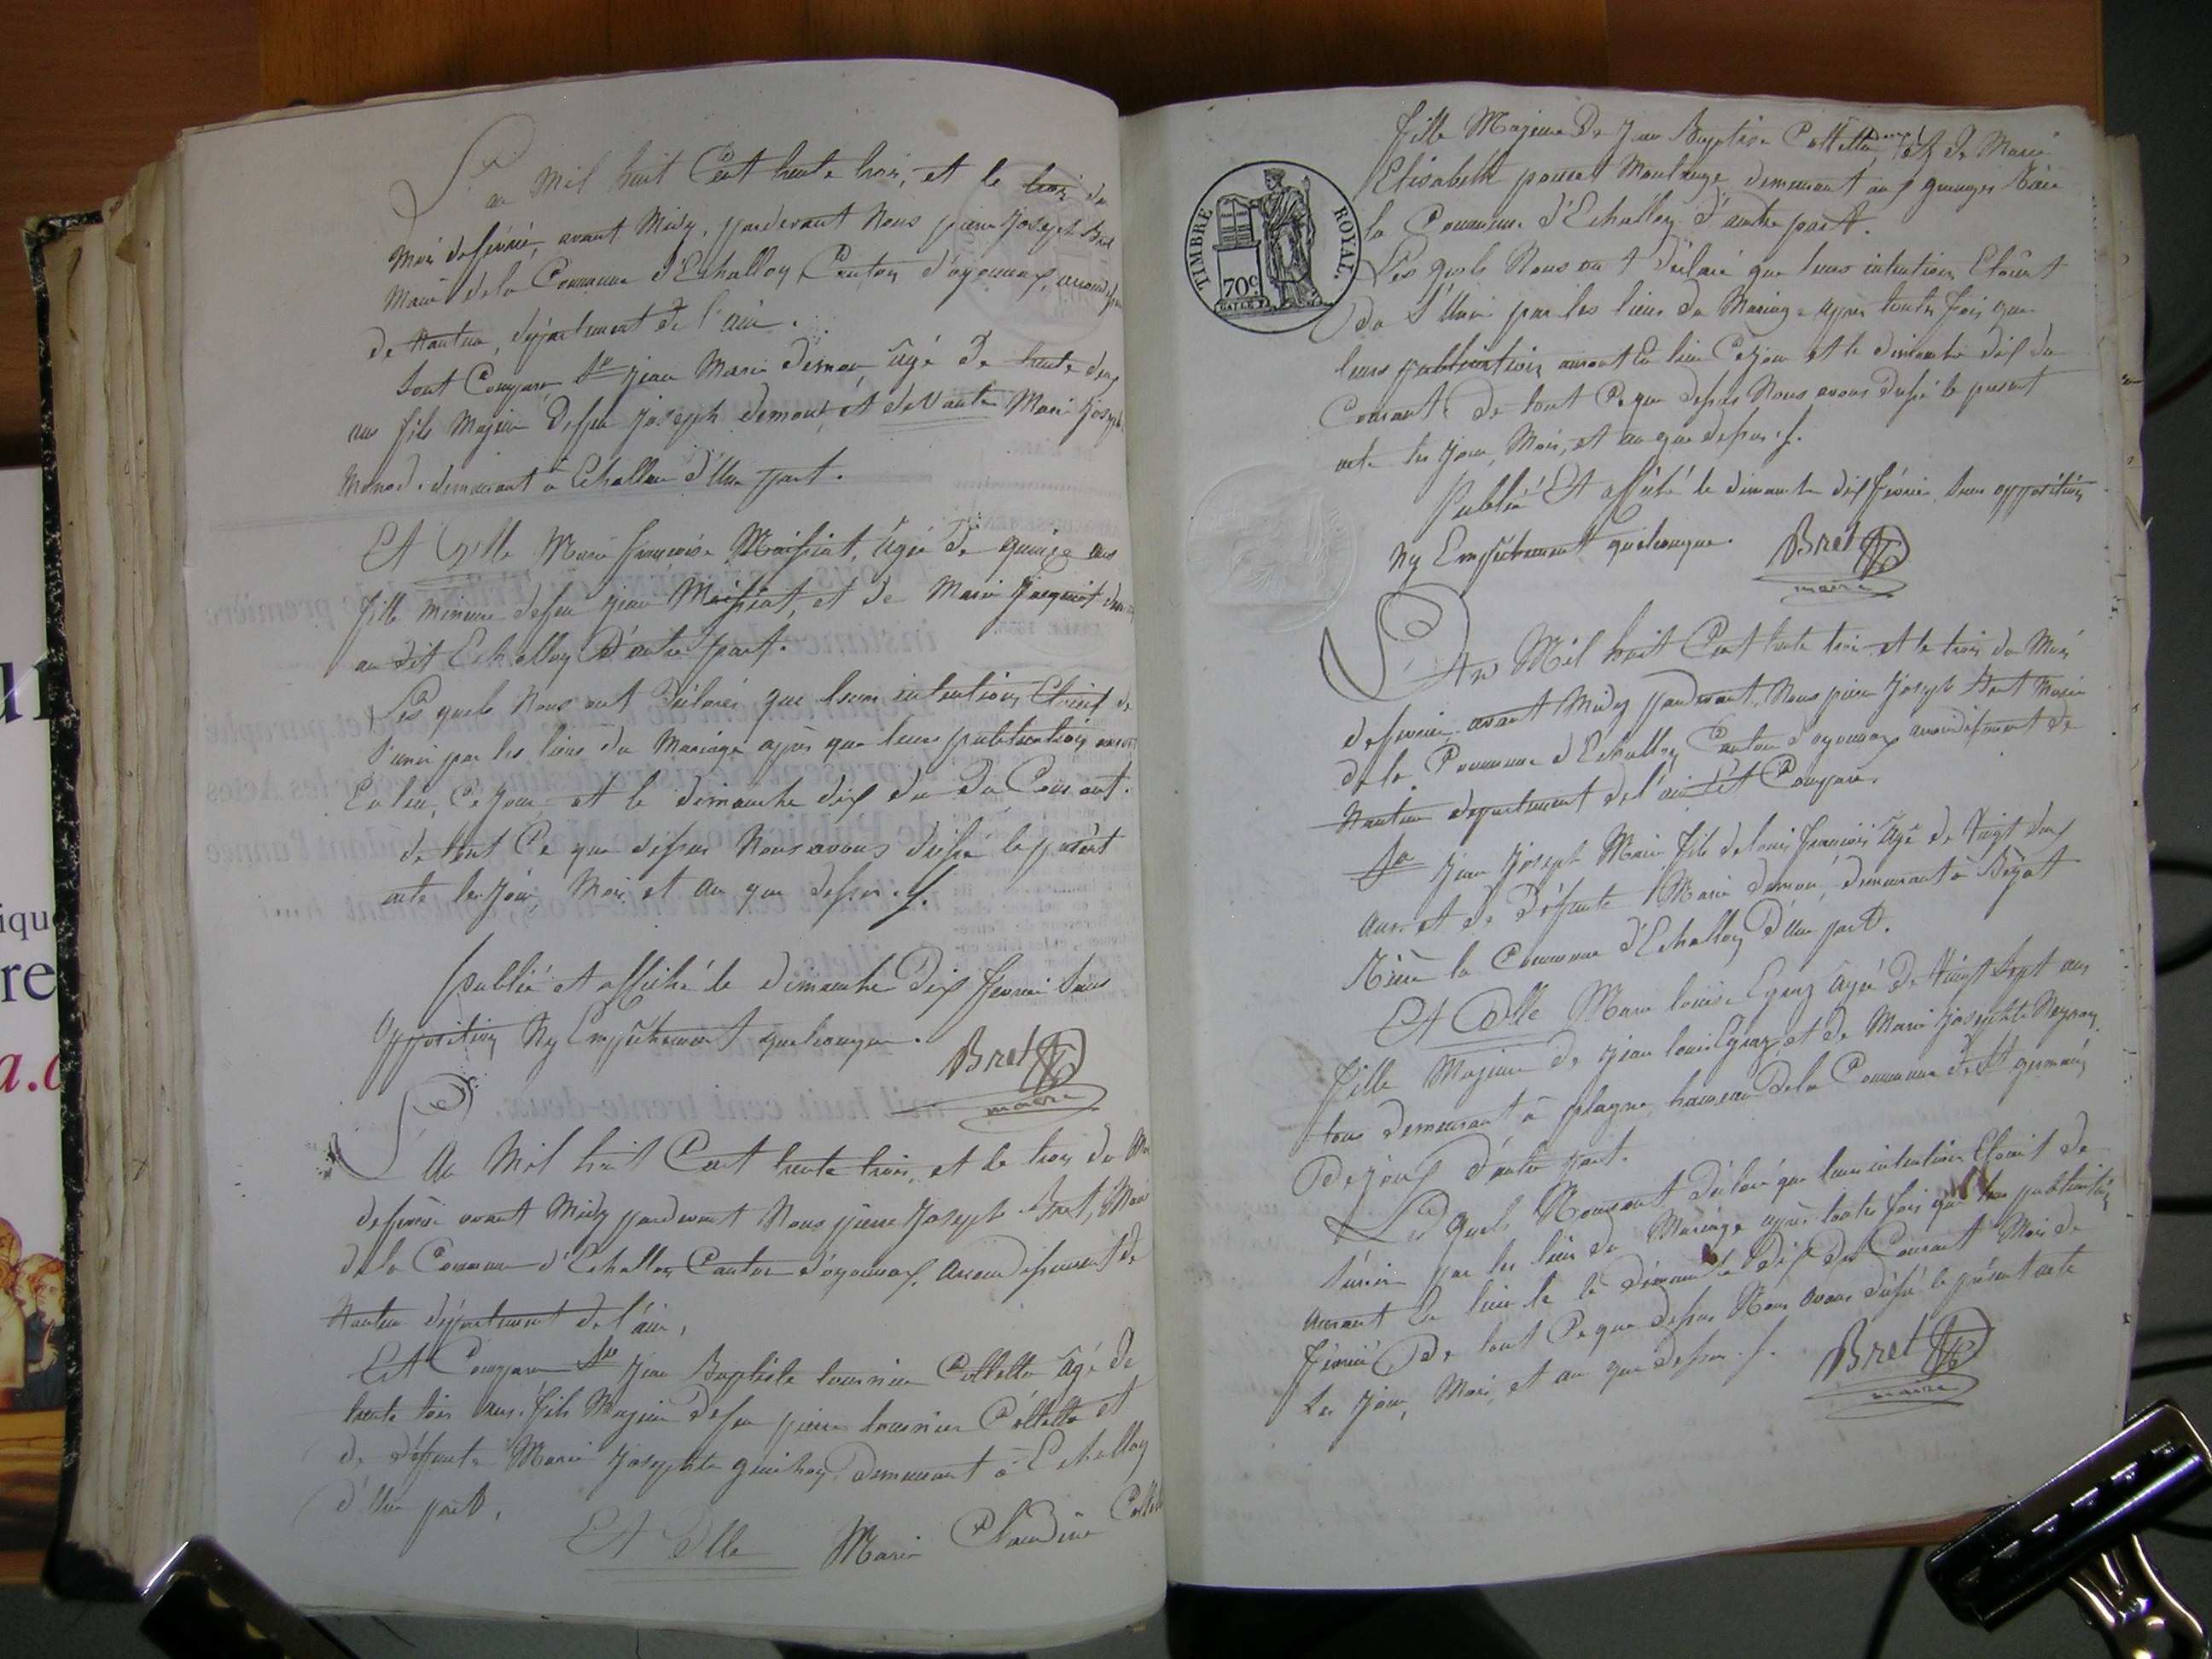 L'an Mil huit Cent trente trois, et le trois du
mois de février, avant Midy, pardevant Nous pierre Joseph Bret
Maire de la Commune d'Echallon, Canton d'oyonnax, arrondissement
de Nantua, département de l'ain.
Sont Comparu Sr Jean Marie demon âgé de trente deux
ans fils Majeur de feu Joseph demon, et de Marie Joseph
Monod, demeurant à Echallon d'Une part.
Et Delle Marie françoise Maissiat, âgée de quinze ans
fille mineure de feu Jean Maissiat, et de Marie Jacquiot
au dit Echallon D'autre part.
Les quels Nous ont déclarés que leurs intentions Etoient de
s'unir par les liens du Mariage après que leurs publications auront
Eu lieu, Ce Jour et le dimanche dix du du Courant.
de tout Ce que dessus Nous avons dressé le présent
acte les Jour, Mois et an que dessus.
Publié et affiché le dimanche Dix fevrier sans
Opposition Ny Empêchement quelconque.
Bret
maire
L'An Mil huit Cent trente trois, et le trois du Mois
de fevrier avant Midy pardevant Nous pierre Joseph Bret, Maire
de la Commune d'Echallon Canton d'oyonnax, arrondissement de
Nantua département de l'ain,
Est Comparu Sr Jean Baptiste tournier Colletta âgé de
trente trois ans, fils Majeur de feu pierre tournier Colletta et
de défunte Marie Josephte Demeurant à Echallon
d'Une part,
Et Delle Marie Claudine
TIMBRE ROYAL.
70c
fille Majeure De Jean Baptiste Colletta, et de Marie
Elisabeth poncet Montange demeurant aux granges Rière
la Commune d'Echallon d'autre part.
Les quels Nous ont déclaré que leurs intentions Etoient
de S'Unir par les liens du Mariage après toutes fois que
leurs publications auront Eu lieu Ce jour et le dimanche dix du
Courant. De tout Ce que dessus Nous avons dressé le présent
acte les Jour, Mois, et an que dessus.
Publié Et affiché le dimanche dix février sans opposition
Ny Empêchement quelconque.
Bret
maire
L'An Mil huit Cent trente trois et le trois du Mois
de fevrier, avant Midy pardevant, Nous pierre Joseph Bret Maire
de la Commune d'Echallon Canton d'oyonnax arrondissement de
Nantua departement de l'ain Est Comparu.
Sr Jean Joseph Marie fils de louis françois âgé de Vingt deux
ans. et de défunte Marie demon, demeurant à
Rière la Commune d'Echallon D'Une part.
Et Delle Marie louise Egraz âgée de Vingt Sept ans
fille Majeure de Jean louis Egraz, et de Marie Josephte Neyron
tous demeurant à plagne, hameau De la Commune de St germain
De joux D'autre part.
Les quels Nous ont déclaré que leurs intentions Etoient de
S'unir par les liens du Mariage après toutes fois que leurs publications
auront Eu lieu le le dimanche Dix du Courant Mois de
février De tout Ce que dessus Nous avons dressé le présent acte
Les Jour, Mois, et an que dessus.
Bret
maire